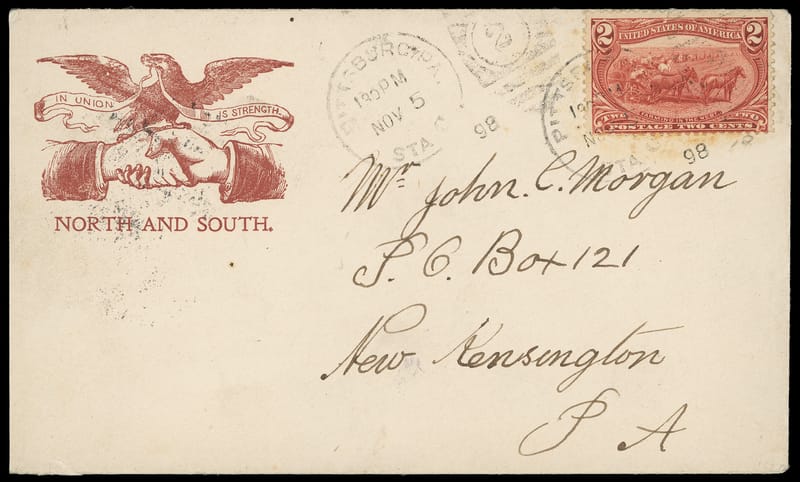 IN UNION IS STRENGTH.
NORTH AND SOUTH.
PITTSBURG, PA.
130PM
NOV 5
98
STA
2 UNITED STATES OF AMERICA 2
FARMING IN THE WEST.
TWO POSTAGE TWO CENTS TWO
PITTSB
98
STA
Mr John. C. Morgan
P. O. Box 121
New Kensington
P A